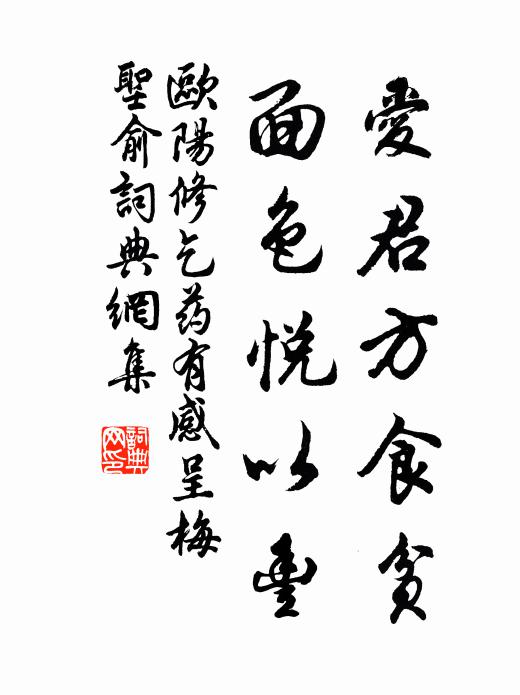 愛君方食貧
面色悦以豊
歐陽修乞药有感呈梅
聖俞詞典網集
詞典网印